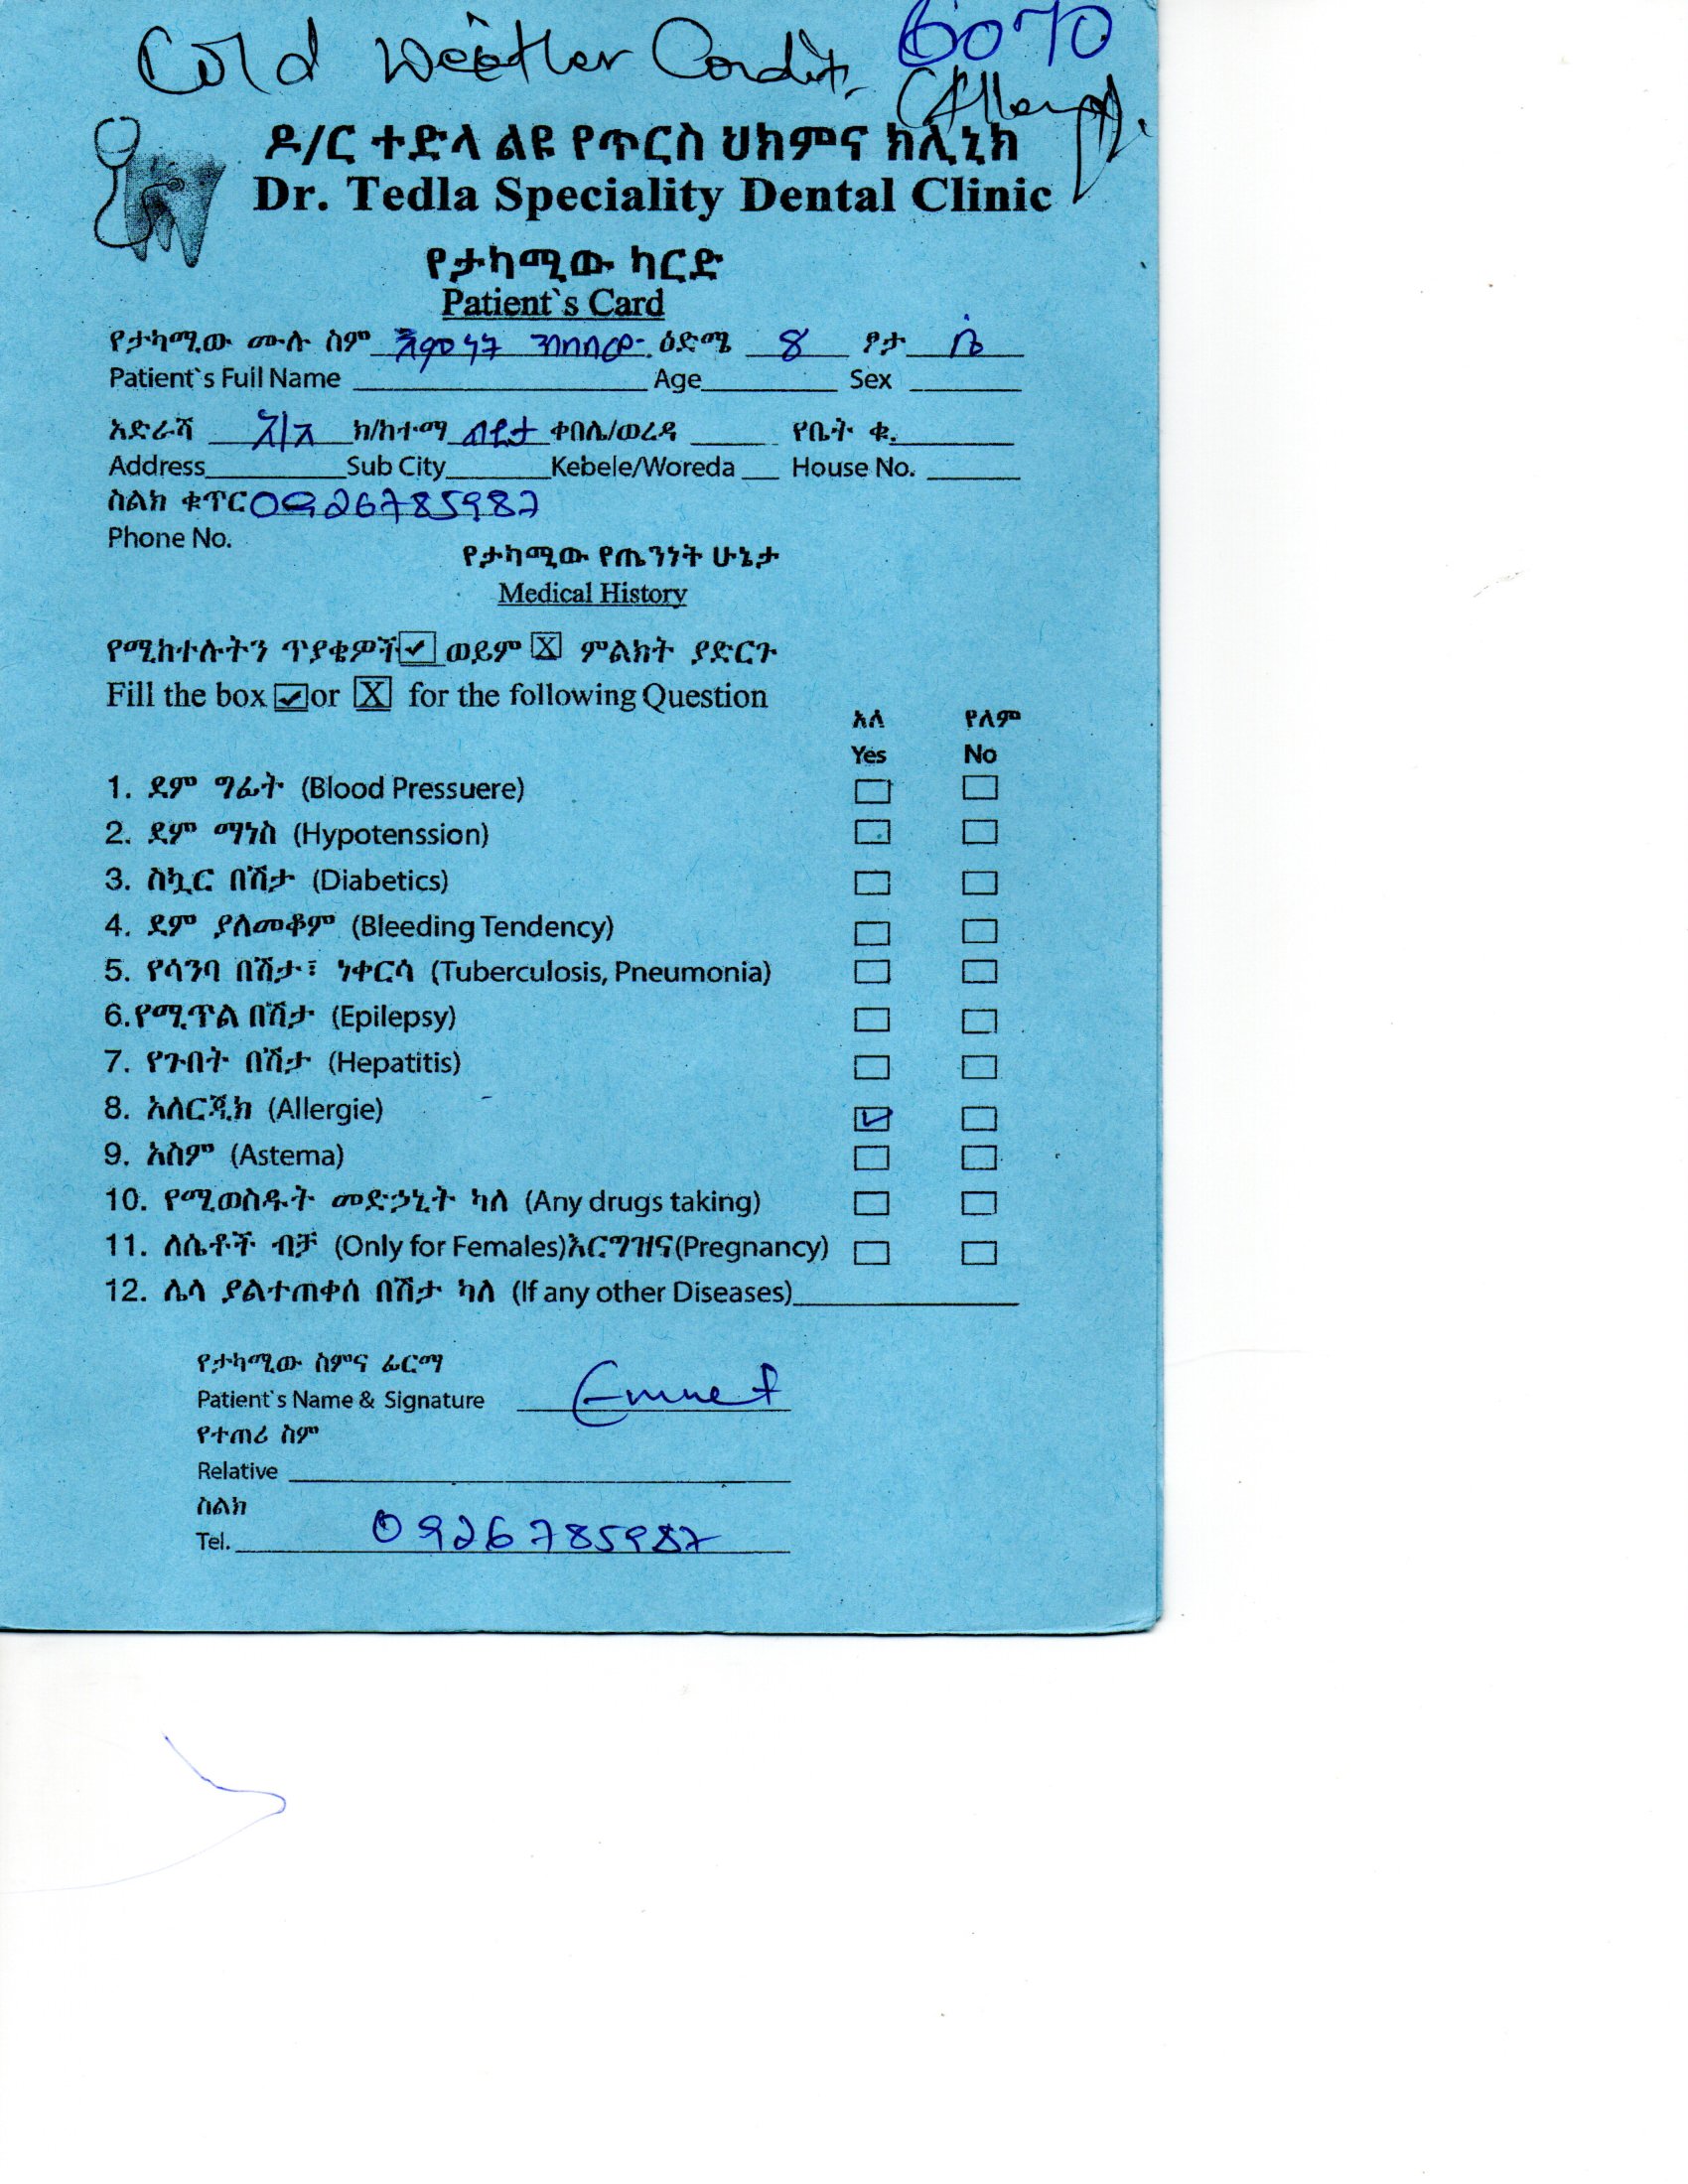 Cold Weather Condit. 6070
(Allergy).
ዶ/ር ተድላ ልዩ የጥርስ ህክምና ክሊኒክ
Dr. Tedla Speciality Dental Clinic
የታካሚው ካርድ
Patient`s Card
የታካሚው ሙሉ ስም እምነት ዕድሜ 8 ፆታ ሴ
Patient`s Full Name Age Sex
አድራሻ አ/አ ክ/ከተማ ቀበሌ/ወረዳ የቤት ቁ.
Address Sub City Kebele/Woreda House No.
ስልክ ቁጥር 0926785987
Phone No.
የታካሚው የጤንነት ሁኔታ
Medical History
የሚከተሉትን ጥያቄዎች ✓ ወይም X ምልክት ያድርጉ
Fill the box ✓ or X for the following Question
አለ የለም
Yes No
1. ደም ግፊት (Blood Pressuere)
2. ደም ማነስ (Hypotenssion)
3. ስኳር በሽታ (Diabetics)
4. ደም ያለመቆም (Bleeding Tendency)
5. የሳንባ በሽታ፣ ነቀርሳ (Tuberculosis, Pneumonia)
6.የሚጥል በሽታ (Epilepsy)
7. የጉበት በሽታ (Hepatitis)
8. አለርጂክ (Allergie) ✓
9. አስም (Astema)
10. የሚወስዱት መድኃኒት ካለ (Any drugs taking)
11. ለሴቶች ብቻ (Only for Females)እርግዝና(Pregnancy)
12. ሌላ ያልተጠቀሰ በሽታ ካለ (If any other Diseases)
የታካሚው ስምና ፊርማ
Patient`s Name & Signature Emnet
የተጠሪ ስም
Relative
ስልክ
Tel. 0926785987